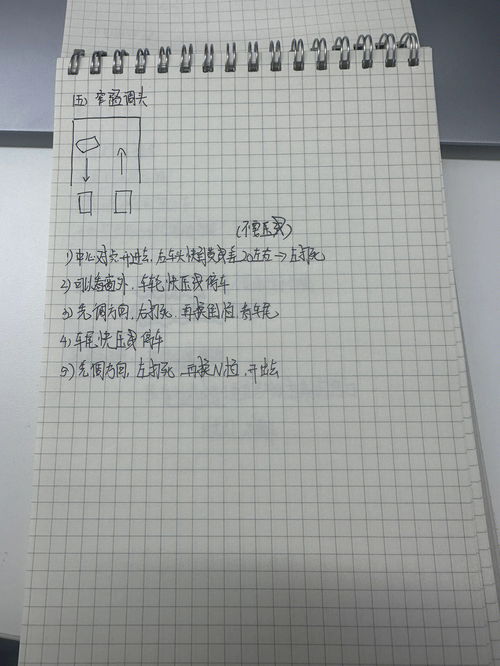 (五) 窄路调头
(不要压线)
1) 中心对点开进去, 左车头快到黄线差20左右→左打死
2) 可以看窗外, 车轮快压线停车
3) 先调方向, 右打死, 再换倒档 看车尾
4) 车尾快压线停车
5) 先调方向, 左打死, 再换N档, 开出去